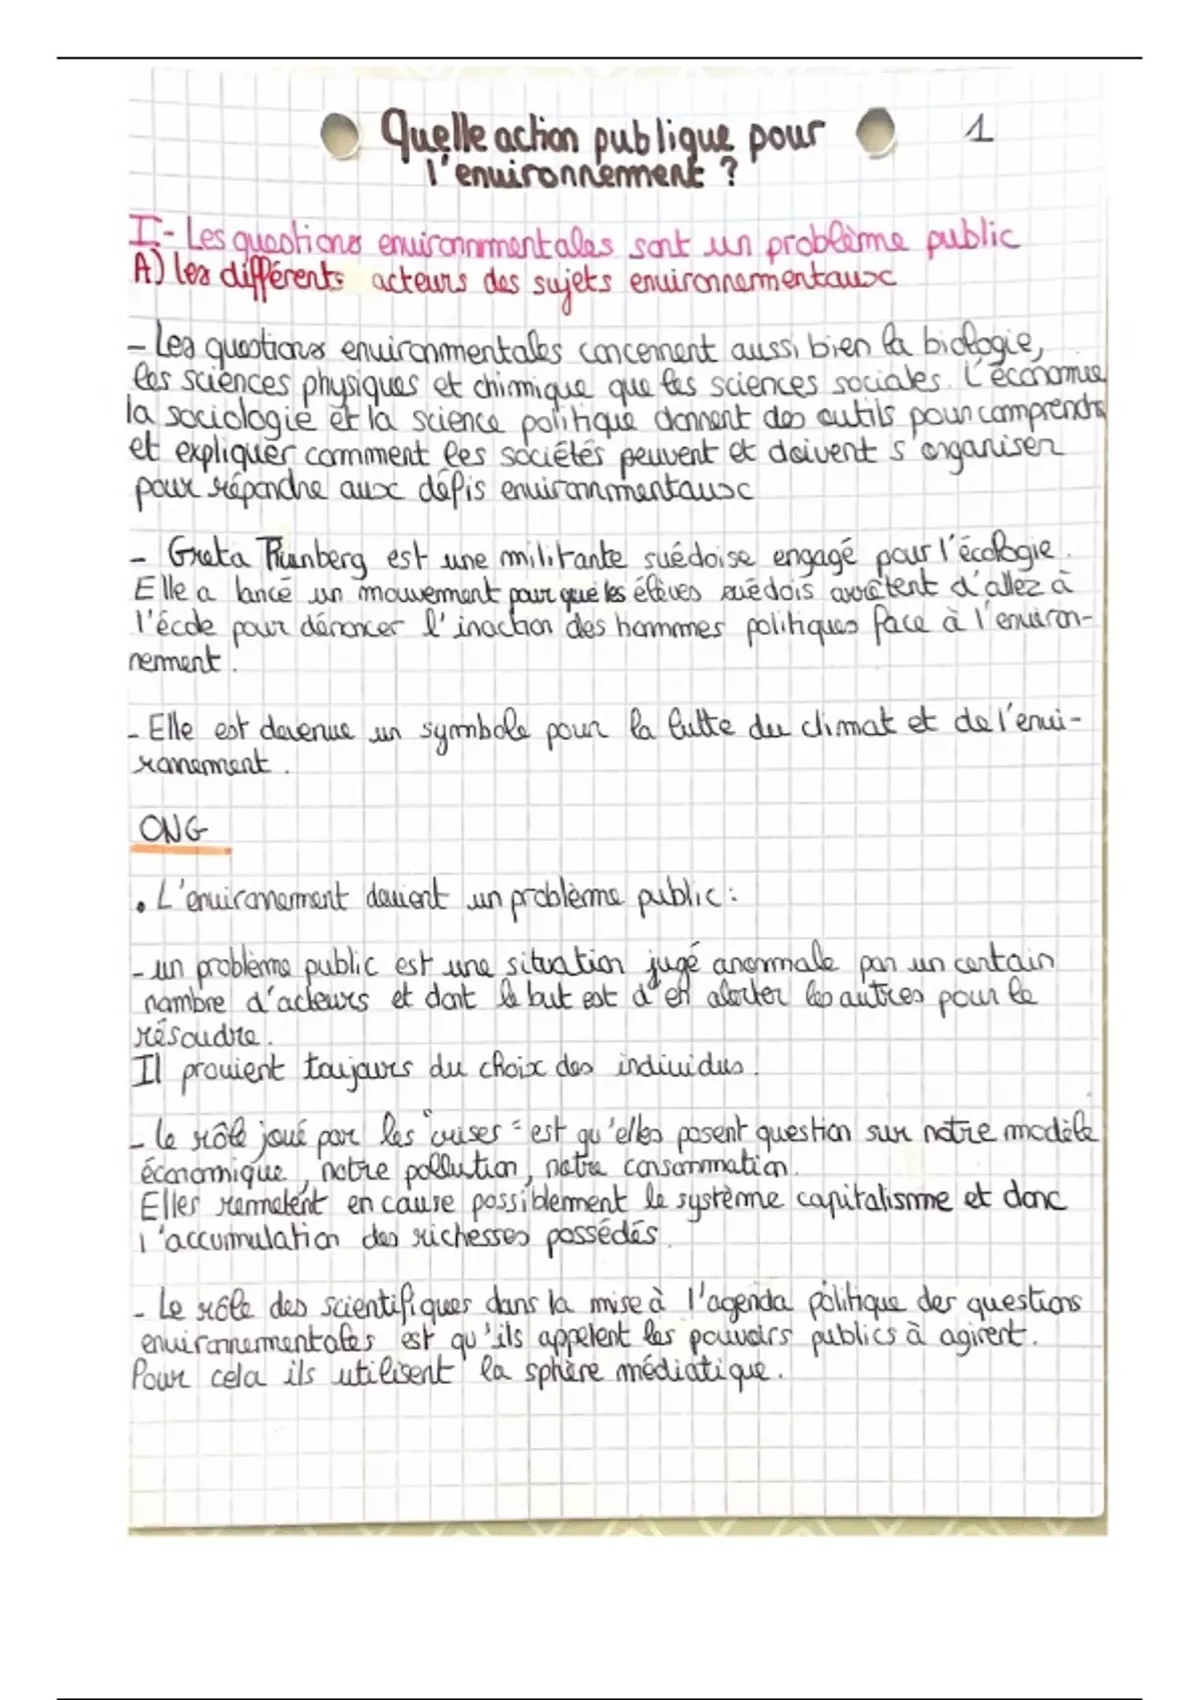 Quelle action publique pour
1
l'environnement ?
I- Les questions environnmentales sont un problème public
A) les différents acteurs des sujets environnementaux
- Les questions environmentales concernent aussi bien la biologie,
les sciences physiques et chimique que les sciences sociales. L'économie
la sociologie et la science politique donnent des outils pour comprendre
et expliquer comment les sociétés peuvent et doivent s'organiser
pour répondre aux défis environmentaux
- Greta Thunberg est une militante suédoise engagé pour l'écologie.
Elle a lancé un mouvement pour que les élèves suédois arrêtent d'allez à
l'école pour dénoncer l'inaction des hommes politiques face à l'environ-
nement.
- Elle est devenue un symbole pour la lutte du climat et de l'envi-
ronement.
ONG
• L'environement devient un problème public :
- un problème public est une situation jugé anormale par un certain
nombre d'acteurs et dont le but est d'en alerter les autres pour le
résoudre.
Il provient toujours du choix des individus.
- le rôle joué par les "crises" est qu'elles posent question sur notre modèle
économique, notre pollution, notre consommation.
Elles remmetent en cause possiblement le système capitalisme et donc
l'accumulation des richesses possédés.
- Le rôle des scientifiques dans la mise à l'agenda politique des questions
environnementales est qu'ils appelent les pouvoirs publics à agirent.
Pour cela ils utilisent la sphère médiatique.